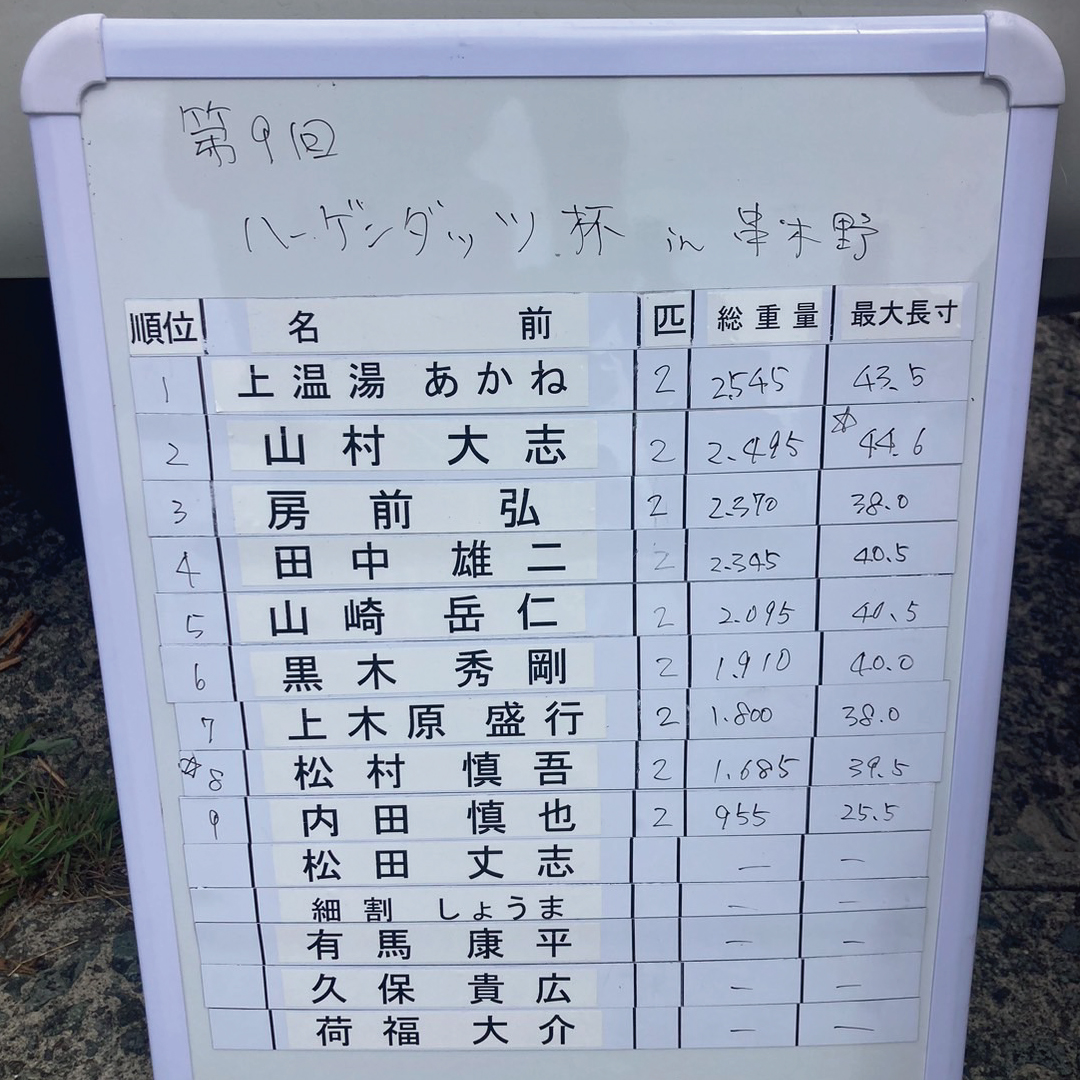 第9回
ハーゲンダッツ杯 in 串木野
順位 名前 匹 総重量 最大長寸
1 上温湯 あかね 2 2.545 43.5
2 山村 大志 2 2.495 ☆44.6
3 房前 弘 2 2.370 38.0
4 田中 雄二 2 2.345 40.5
5 山崎 岳仁 2 2.095 40.5
6 黒木 秀剛 2 1.910 40.0
7 上木原 盛行 2 1.800 38.0
☆8 松村 慎吾 2 1.685 39.5
9 内田 慎也 2 955 25.5
松田 丈志 ー ー
細割 しょうま ー ー
有馬 康平 ー ー
久保 貴広 ー ー
荷福 大介 ー ー